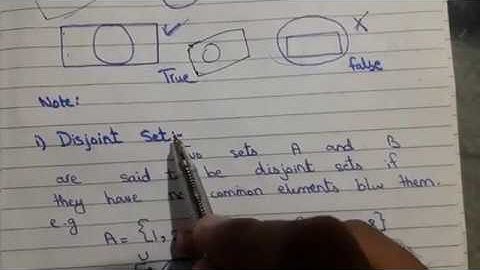 True
false
Note:
1) Disjoint Set:-
sets A and B
are said be disjoint sets if
they have common elements b/w them.
e.g
A = {1,